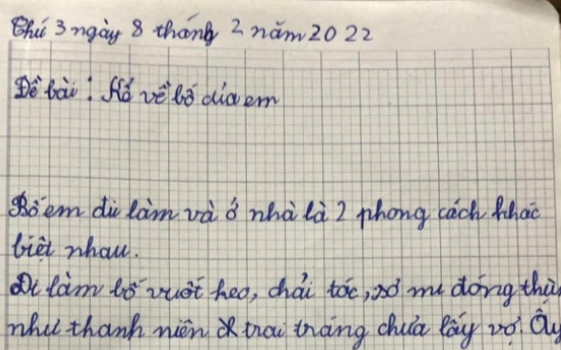 Thứ 3 ngày 8 tháng 2 năm 2022
Đề bài: Kể về bố của em
Bố em đi làm và ở nhà là 2 phong cách khác
biệt nhau.
Đi làm bố vuốt keo, chải tóc, sơ mi đóng thùn
như thanh niên trai tráng chưa lấy vợ. Ấy